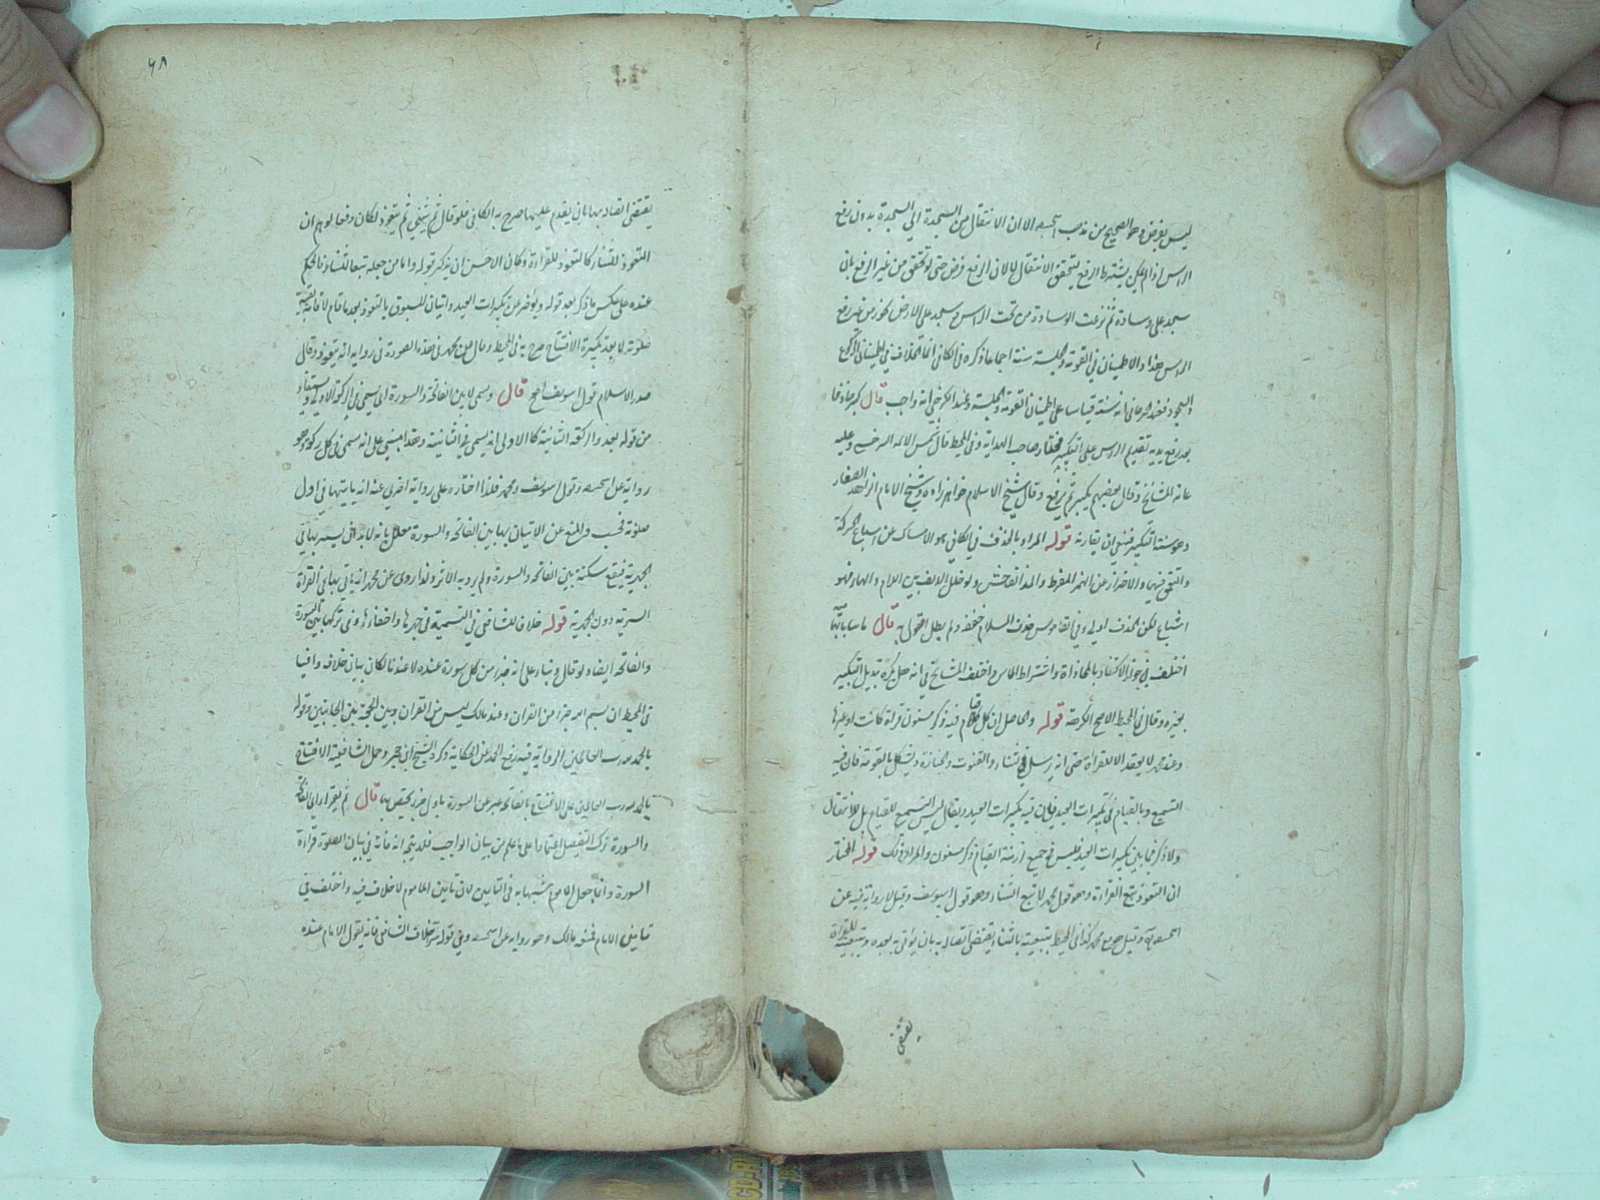 ليس بفرض وهو الصحيح من مذهب الا ان الانتقال من السجدة الى السجدة بدون رفع
الراس اذا لم يكن يشترط الرفع لتحقق الانتقال لا لان الرفع فرض حتى لو تحقق من غير الرفع بان
سجد على وسادة ثم نزعت الوسادة من تحت الراس وسجد على الارض يجوز من غير رفع
الراس هذا واما الاطمينان في القومة والجلسة سنة اجماعا ذكره في الكافي انما الخلاف في اطمينان الركوع
والسجود فعند الجرجاني انه سنة قياسا على اطمينان القومة والجلسة وعند الكرخي انه واجب قال كبر
بعد رفع يديه تقديم الرفع على التكبير مختار صاحب الهداية وفي المحيط قال شمس الائمة السرخسي وعليه
عامة المشايخ وقال بعضهم يكبر ثم يرفع وقال شيخ الاسلام خواهر زاده وشيخ الامام الزاهد الصفار
فينبغي ان يقارنه قوله المراد بالحذف في الكافي هو الامساك عن اشباع الحركة
والتعمق فيها والاحتراز عن الهمز المفرط والمد الفاحش ولو دخل الالف بين اللام والهاء فهو
اشباع لكن الحذف اولى وفي القاموس حذف السلام خففه ولم يطل القول به قال ماسا بابهاميه
اختلف في جواز الاكتفاء بالمحاذاة واشتراط المس واختلف المشايخ في انه هل يكره تبديل التكبير
بغيره وقال في المحيط الاصح الكراهة قوله والحاصل ان كل قيام فيه ذكر مسنون قراءة كانت او غيرها
وعند محمد لا يعقد الا للقراءة حتى انه يرسل في الثناء والقنوت والجنازة ويشكل بالقومة فان فيه
التسميع وبالقيام في تكبيرات العيد فان فيه تكبيرات العيد ويقال ليس التسميع للقيام بل للانتقال
ولا ذكر فيما بين تكبيرات العيد فليس في جميع ازمنة القيام ذكر مسنون والمراد ذلك قوله المختار
ان التعوذ يتبع القراءة وهو قول محمد لا يتبع الثناء وهو قول ابي يوسف وقيل لا رواية فيه عن
وقيل هو مع محمد كذا في المحيط تبعيته بالثناء يقتضي اتصاله به بان يؤتى به بعده وتبعيته للقراءة
يقتضي
٦٨
يقتضي اتصاله بها بان يقدم عليها صرح به الكافي فلو قال ثم يثني ثم يتعوذ لكان دفعا لوهم ان
التعوذ للثناء كالتعوذ للقراءة وكان الاحسن ان يذكر قوله واما من جعله تبعا للثناء فالحكم
عنده على عكس ما ذكر بعد قوله ويؤخر عن تكبيرات العيد واتيان المسبوق بالتعوذ بعد ما قام لاقامة بقية
صلوته لا بعد تكبيرة الافتتاح صرح به في المحيط وقال عن محمد في هذه الصورة في رواية انه يتعوذ وقال
صدر الاسلام قول ابي يوسف اصح قال ويسمي لا بين الفاتحة والسورة اي يسمي في الركعة الاولى ويستفاد
من قوله بعد والركعة الثانية كالاولى انه يسمي في الثانية وهذا مبني على انه يسمي في كل ركعة وهو
رواية عن وقول ابي يوسف ومحمد فلذا اختاره على رواية اخرى عنه انه ياتيها في اول
صلوته فحسب والمنع عن الاتيان بها بين الفاتحة والسورة معلل بانه لا بد ان يسر بها في
الجهرية فيقع سكتة بين الفاتحة والسورة ولم يرد به الاثر ولذا روي عن محمد انه ياتي بها في القراءة
السرية دون الجهرية قوله خلافا للشافعي في التسمية في جهرها واخفائها وفي تركها بين السورة
والفاتحة ايضا ولو قال وبناء على انه جزء من كل سورة عنده لا عندنا لكان بيان خلافه وافيا
في المحيط ان بسم الله جزء من القران وعند مالك ليس من القران وبين الحجة بين الجانبين وقوله
بالحمد لله رب العالمين الرواية فيه رفع الحمد عن الحكاية وذكر الشيخ ابن حجر وحمل الشافعية الافتتاح
بالحمد لله رب العالمين على الافتتاح بالفاتحة عبر عن السورة باول جزء يختص بها قال ثم يقرأ اي الفاتحة
والسورة ترك التفصيل اعتمادا على ما علم من بيان الواجب فلا يتجه انه فاته في بيان الصلوة قراءة
السورة وانما جعل الماموم شبيها به في التامين لان تامين الماموم لا خلاف فيه واختلف في
تامين الامام فنفاه مالك وهو رواية عن وفي قوله سرا خلاف الشافعي فانه يقول الامام عنده